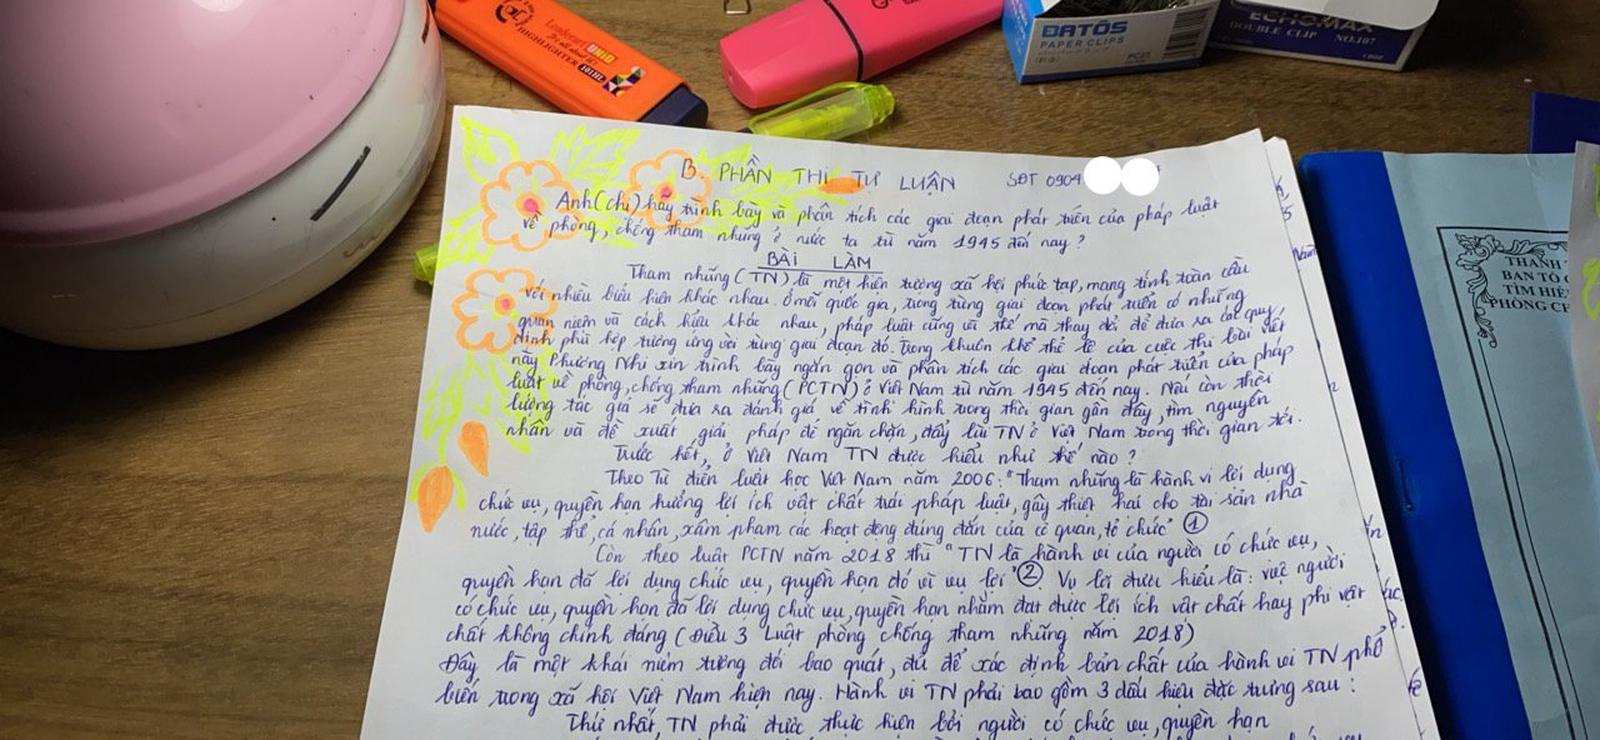 Lediberi UNIO
It's all about it!
HIGHLIGHTER
BATOS
PAPER CLIPS
ECHOMAX
DOUBLE CLIP NO.107
B. PHẦN THI TỰ LUẬN SĐT 0904
Anh(chị) hãy trình bày và phân tích các giai đoạn phát triển của pháp luật
về phòng, chống tham nhũng ở nước ta từ năm 1945 đến nay?
BÀI LÀM
Tham nhũng (TN) là một hiện tượng xã hội phức tạp, mang tính toàn cầu
với nhiều biểu hiện khác nhau. Ở mỗi quốc gia, trong từng giai đoạn phát triển có những
quan niệm và cách hiểu khác nhau, pháp luật cũng vì thế mà thay đổi để đưa ra các quy
định phù hợp tương ứng với từng giai đoạn đó. Trong khuôn khổ thể lệ của cuộc thi bài viết
này Phương Nhi xin trình bày ngắn gọn và phân tích các giai đoạn phát triển của pháp
luật về phòng, chống tham nhũng (PCTN) ở Việt Nam từ năm 1945 đến nay. Nếu còn thời
lượng tác giả sẽ đưa ra đánh giá về tình hình trong thời gian gần đây, tìm nguyên
nhân và đề xuất giải pháp để ngăn chặn, đẩy lùi TN ở Việt Nam trong thời gian tới.
Trước hết, ở Việt Nam TN được hiểu như thế nào?
Theo Từ điển luật học Việt Nam năm 2006: "Tham nhũng là hành vi lợi dụng
chức vụ, quyền hạn hưởng lợi ích vật chất trái pháp luật, gây thiệt hại cho tài sản nhà
nước, tập thể, cá nhân, xâm phạm các hoạt động đúng đắn của cơ quan, tổ chức" ①
Còn theo luật PCTN năm 2018 thì "TN là hành vi của người có chức vụ,
quyền hạn đã lợi dụng chức vụ, quyền hạn đó vì vụ lợi" ② Vụ lợi được hiểu là: việc người
có chức vụ, quyền hạn đã lợi dụng chức vụ, quyền hạn nhằm đạt được lợi ích vật chất hay phi vật
chất không chính đáng (Điều 3 Luật phòng chống tham nhũng năm 2018)
Đây là một khái niệm tương đối bao quát, đủ để xác định bản chất của hành vi TN phổ
biến trong xã hội Việt Nam hiện nay. Hành vi TN phải bao gồm 3 dấu hiệu đặc trưng sau:
Thứ nhất, TN phải được thực hiện bởi người có chức vụ, quyền hạn
THANH
BAN TỔ C
TÌM HIỂ
PHÒNG CH